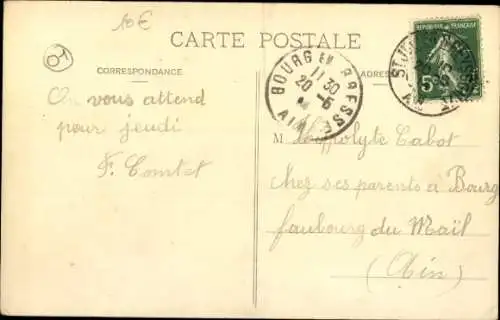 10 €
CARTE POSTALE
CORRESPONDANCE
ADRES
RÉPUBLIQUE FRANÇAISE
5
BOURG EN BRESSE
11 30
20 - 5
AIN
On vous attend
pour jeudi
F. Comtet
M Hippolyte Cabot
chez ses parents à Bourg
faubourg du Mail
(Ain)